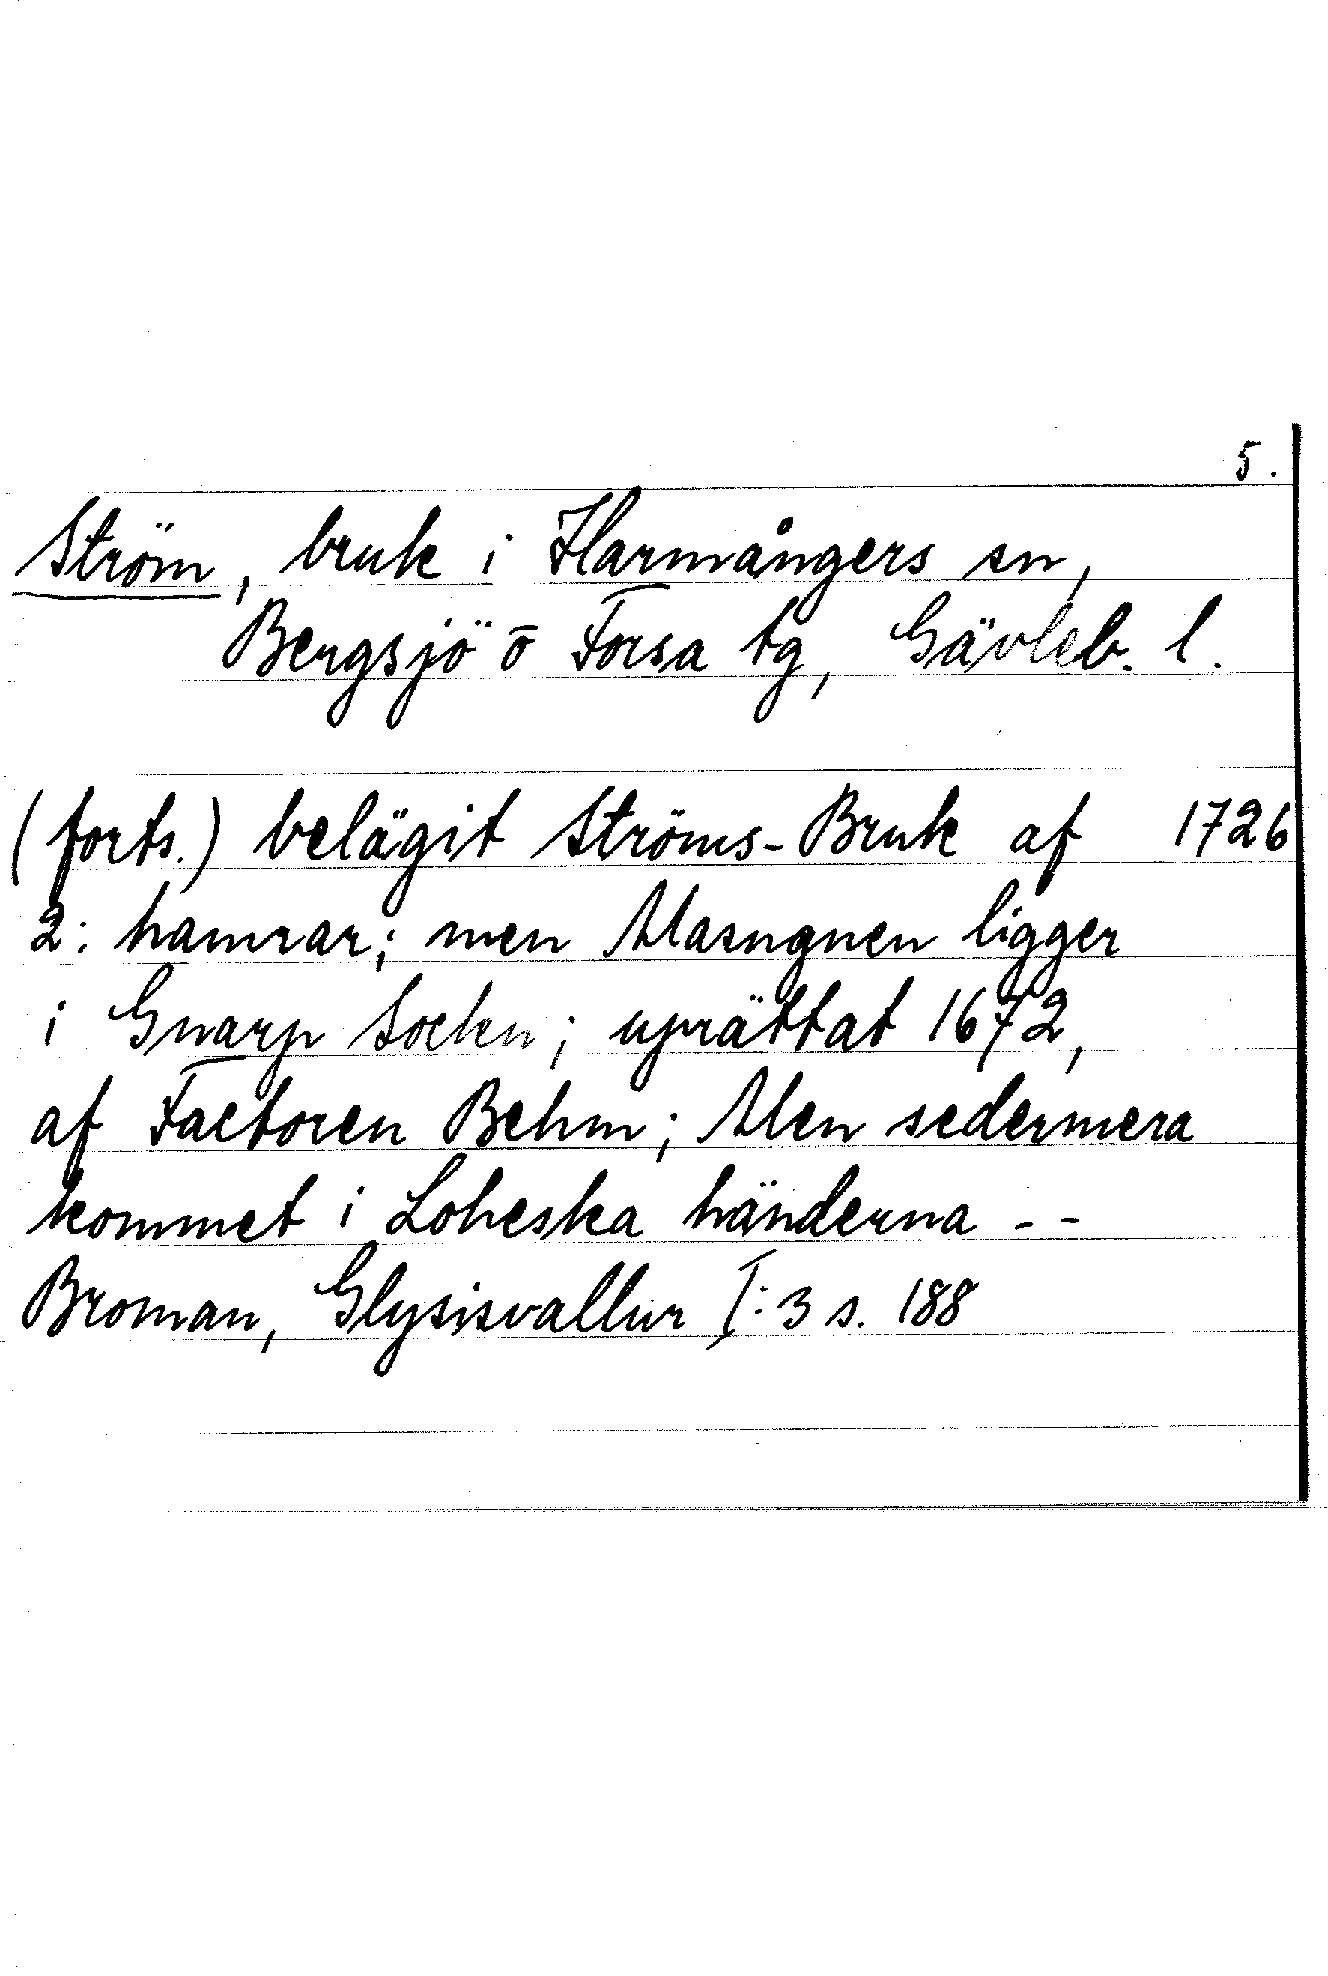 5.
Ström, bruk i Harmångers sn,
Bergsjö o Forsa tg, Gävleb. l.
(forts.) belägit Ströms-Bruk af 1726
2: hamrar; men Masugnen ligger
i Gnarp Sockn; uprättat 1672,
af Factoren Behm; Men sedermera
kommet i Loheska händerna - -
Broman, Glysisvallur I:3 s. 188